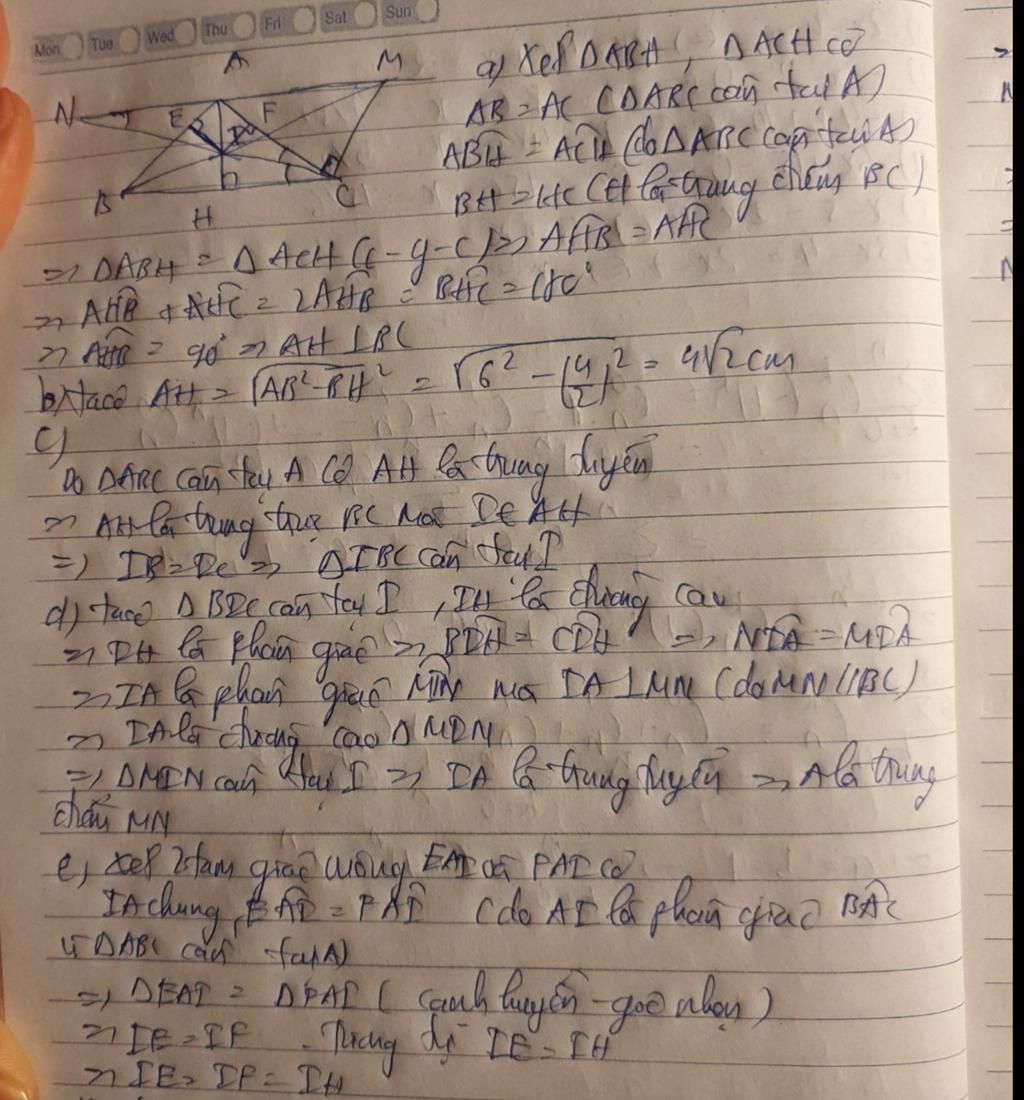 Mon Tue Wed Thu Fri Sat Sun
A M
N E F I
B H C
a) Xét ΔABH, ΔACH có
AB = AC (ΔABC cân tại A)
ABH = ACH (do ΔABC cân tại A)
BH = HC (H là trung điểm BC)
=> ΔABH = ΔACH (c-g-c) => AHB = AHC
=> AHB + AHC = 2AHB = BHC = 180°
=> AHB = 90° => AH ⊥ BC
b) ta có AH = √(AB² - BH²) = √(6² - (4/2)²) = 4√2 cm
c)
Do ΔABC cân tại A có AH là trung tuyến
=> AH là trung trực BC mà I ∈ AH
=> IB = IC => ΔIBC cân tại I
d) ta có ΔBIC cân tại I, IH là đường cao
=> IH là phân giác => BIH = CIH => NIA = MIA
=> IA là phân giác MIN mà IA ⊥ MN (do MN // BC)
=> IA là đường cao ΔMIN
=> ΔMIN cân tại I => IA là trung tuyến => A là trung
điểm MN
e, xét 2 tam giác vuông EAI và FAI có
IA chung, EAI = FAI (do AI là phân giác BAC
ΔABC cân tại A)
=> ΔEAI = ΔFAI (cạnh huyền - góc nhọn)
=> IE = IF. Tương tự IE = IH
=> IE = IF = IH